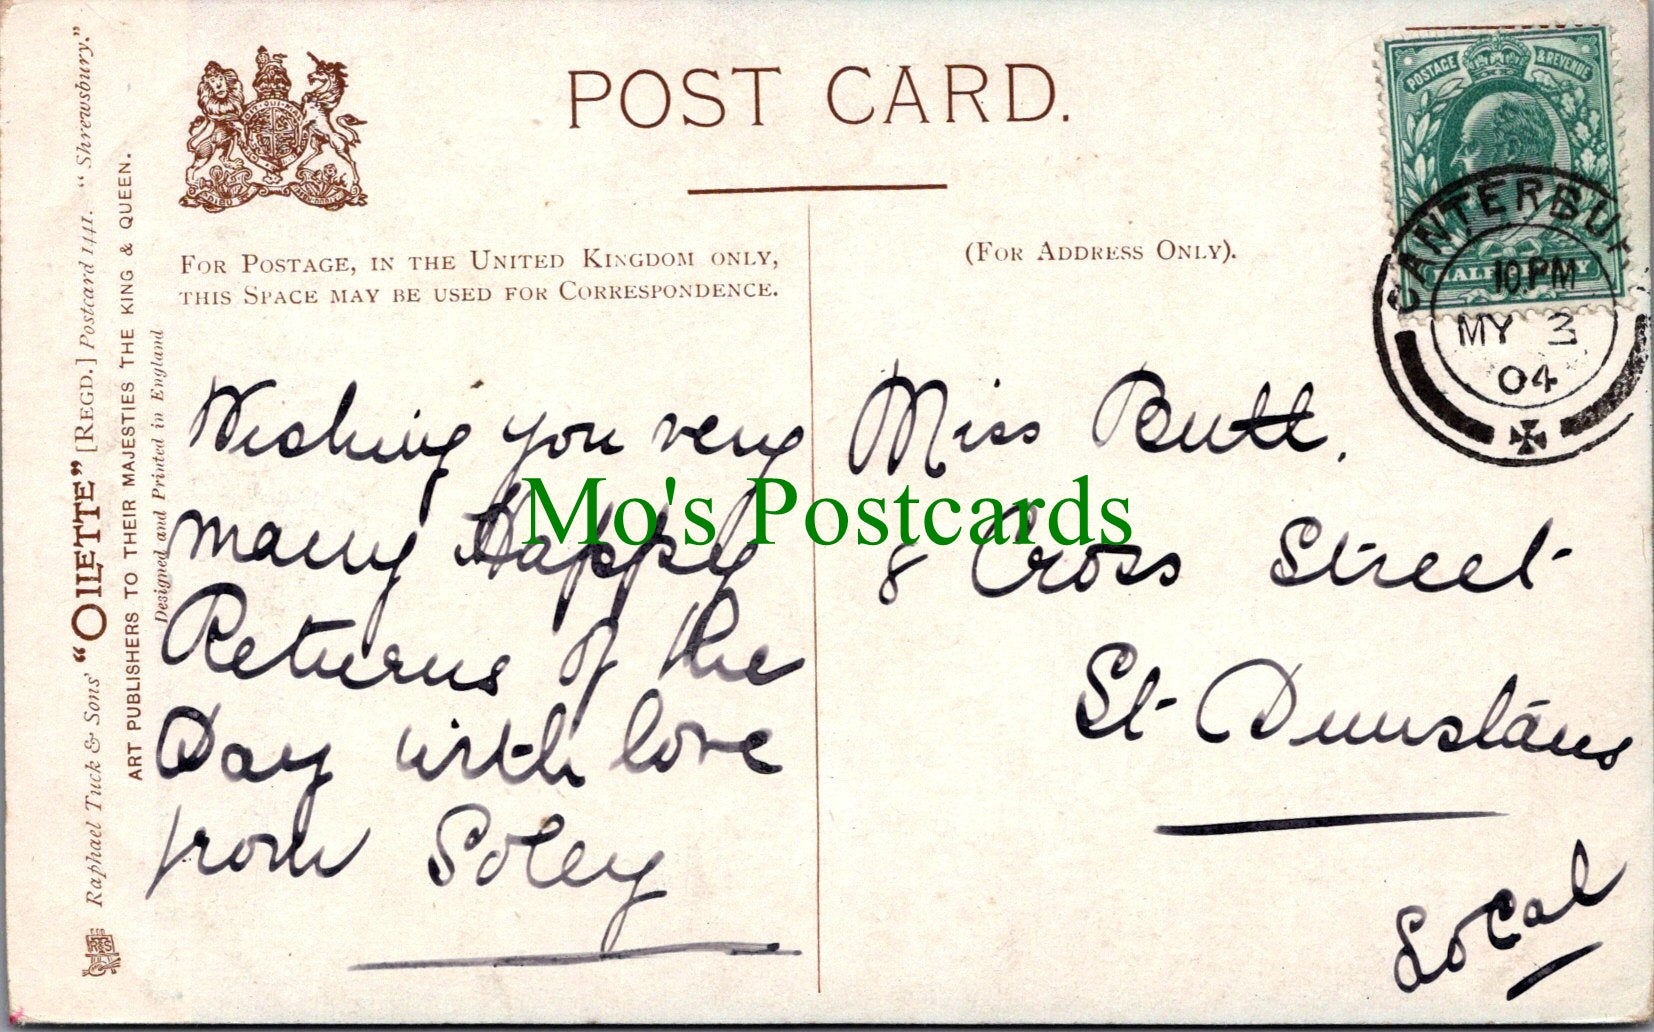 POST CARD.
FOR POSTAGE, IN THE UNITED KINGDOM ONLY,
THIS SPACE MAY BE USED FOR CORRESPONDENCE.
(FOR ADDRESS ONLY).
Raphael Tuck & Sons' "OILETTE" [REGD.] Postcard 1441. "Shrewsbury."
ART PUBLISHERS TO THEIR MAJESTIES THE KING & QUEEN.
Designed and Printed in England
POSTAGE & REVENUE
HALFPENNY
CANTERBUR
10.PM
MY 3
04
Wishing you very
many Happy
Returns of the
Day with love
from Soley
Miss Butt.
8 Cross Street
St Dunstans
Local
Mo's Postcards